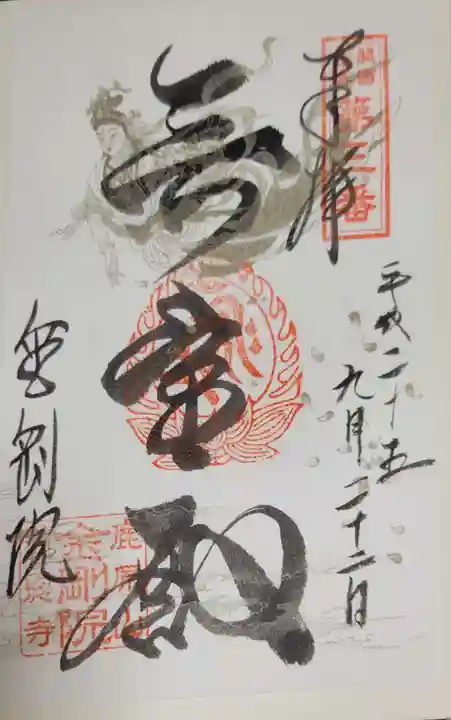 第三番
奉拝
平成二十五
九月二十二日
殿
金剛院
鹿原山
金剛院
寺